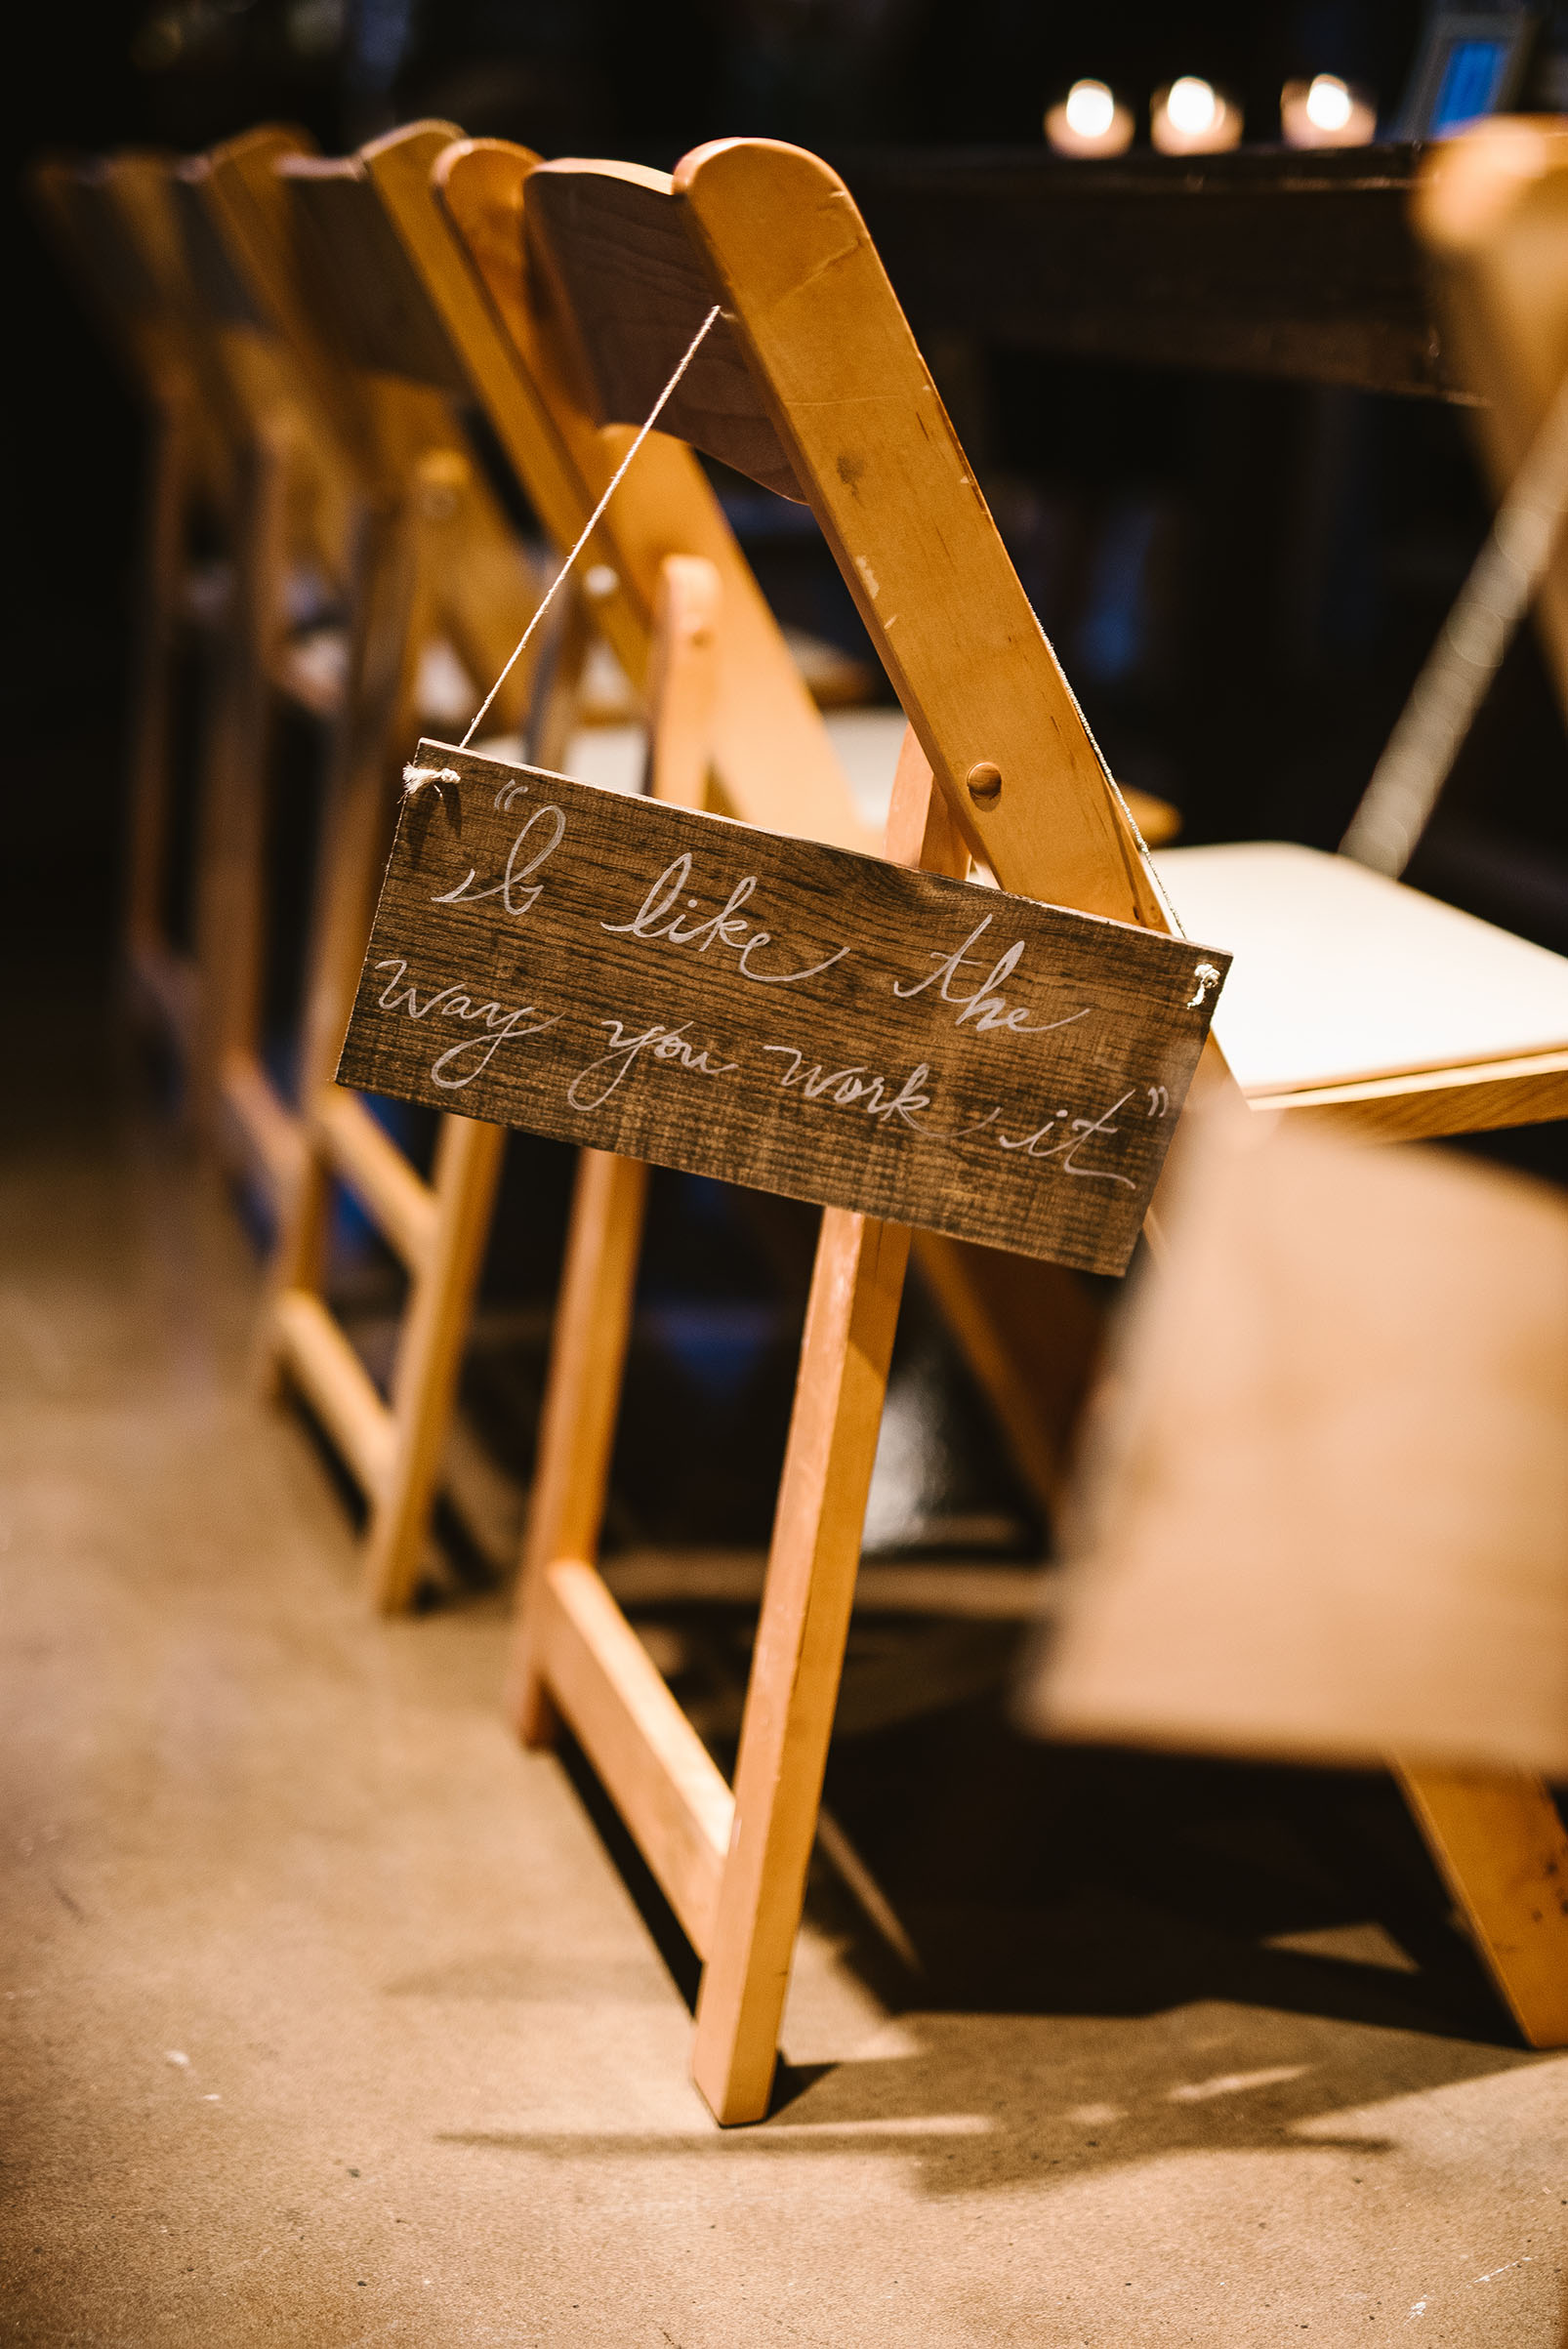 “I like the
way you work it”